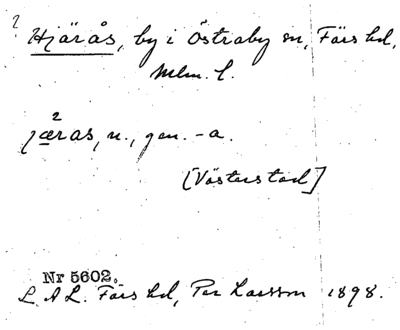 ? Hjärås, by i Östraby sn, Färs hd,
Mlm. l.
jæ²ras, n., gen. -a.
[Västerstad]
Nr 5602.
L.A.L. Färs hd, Per Larsson 1898.